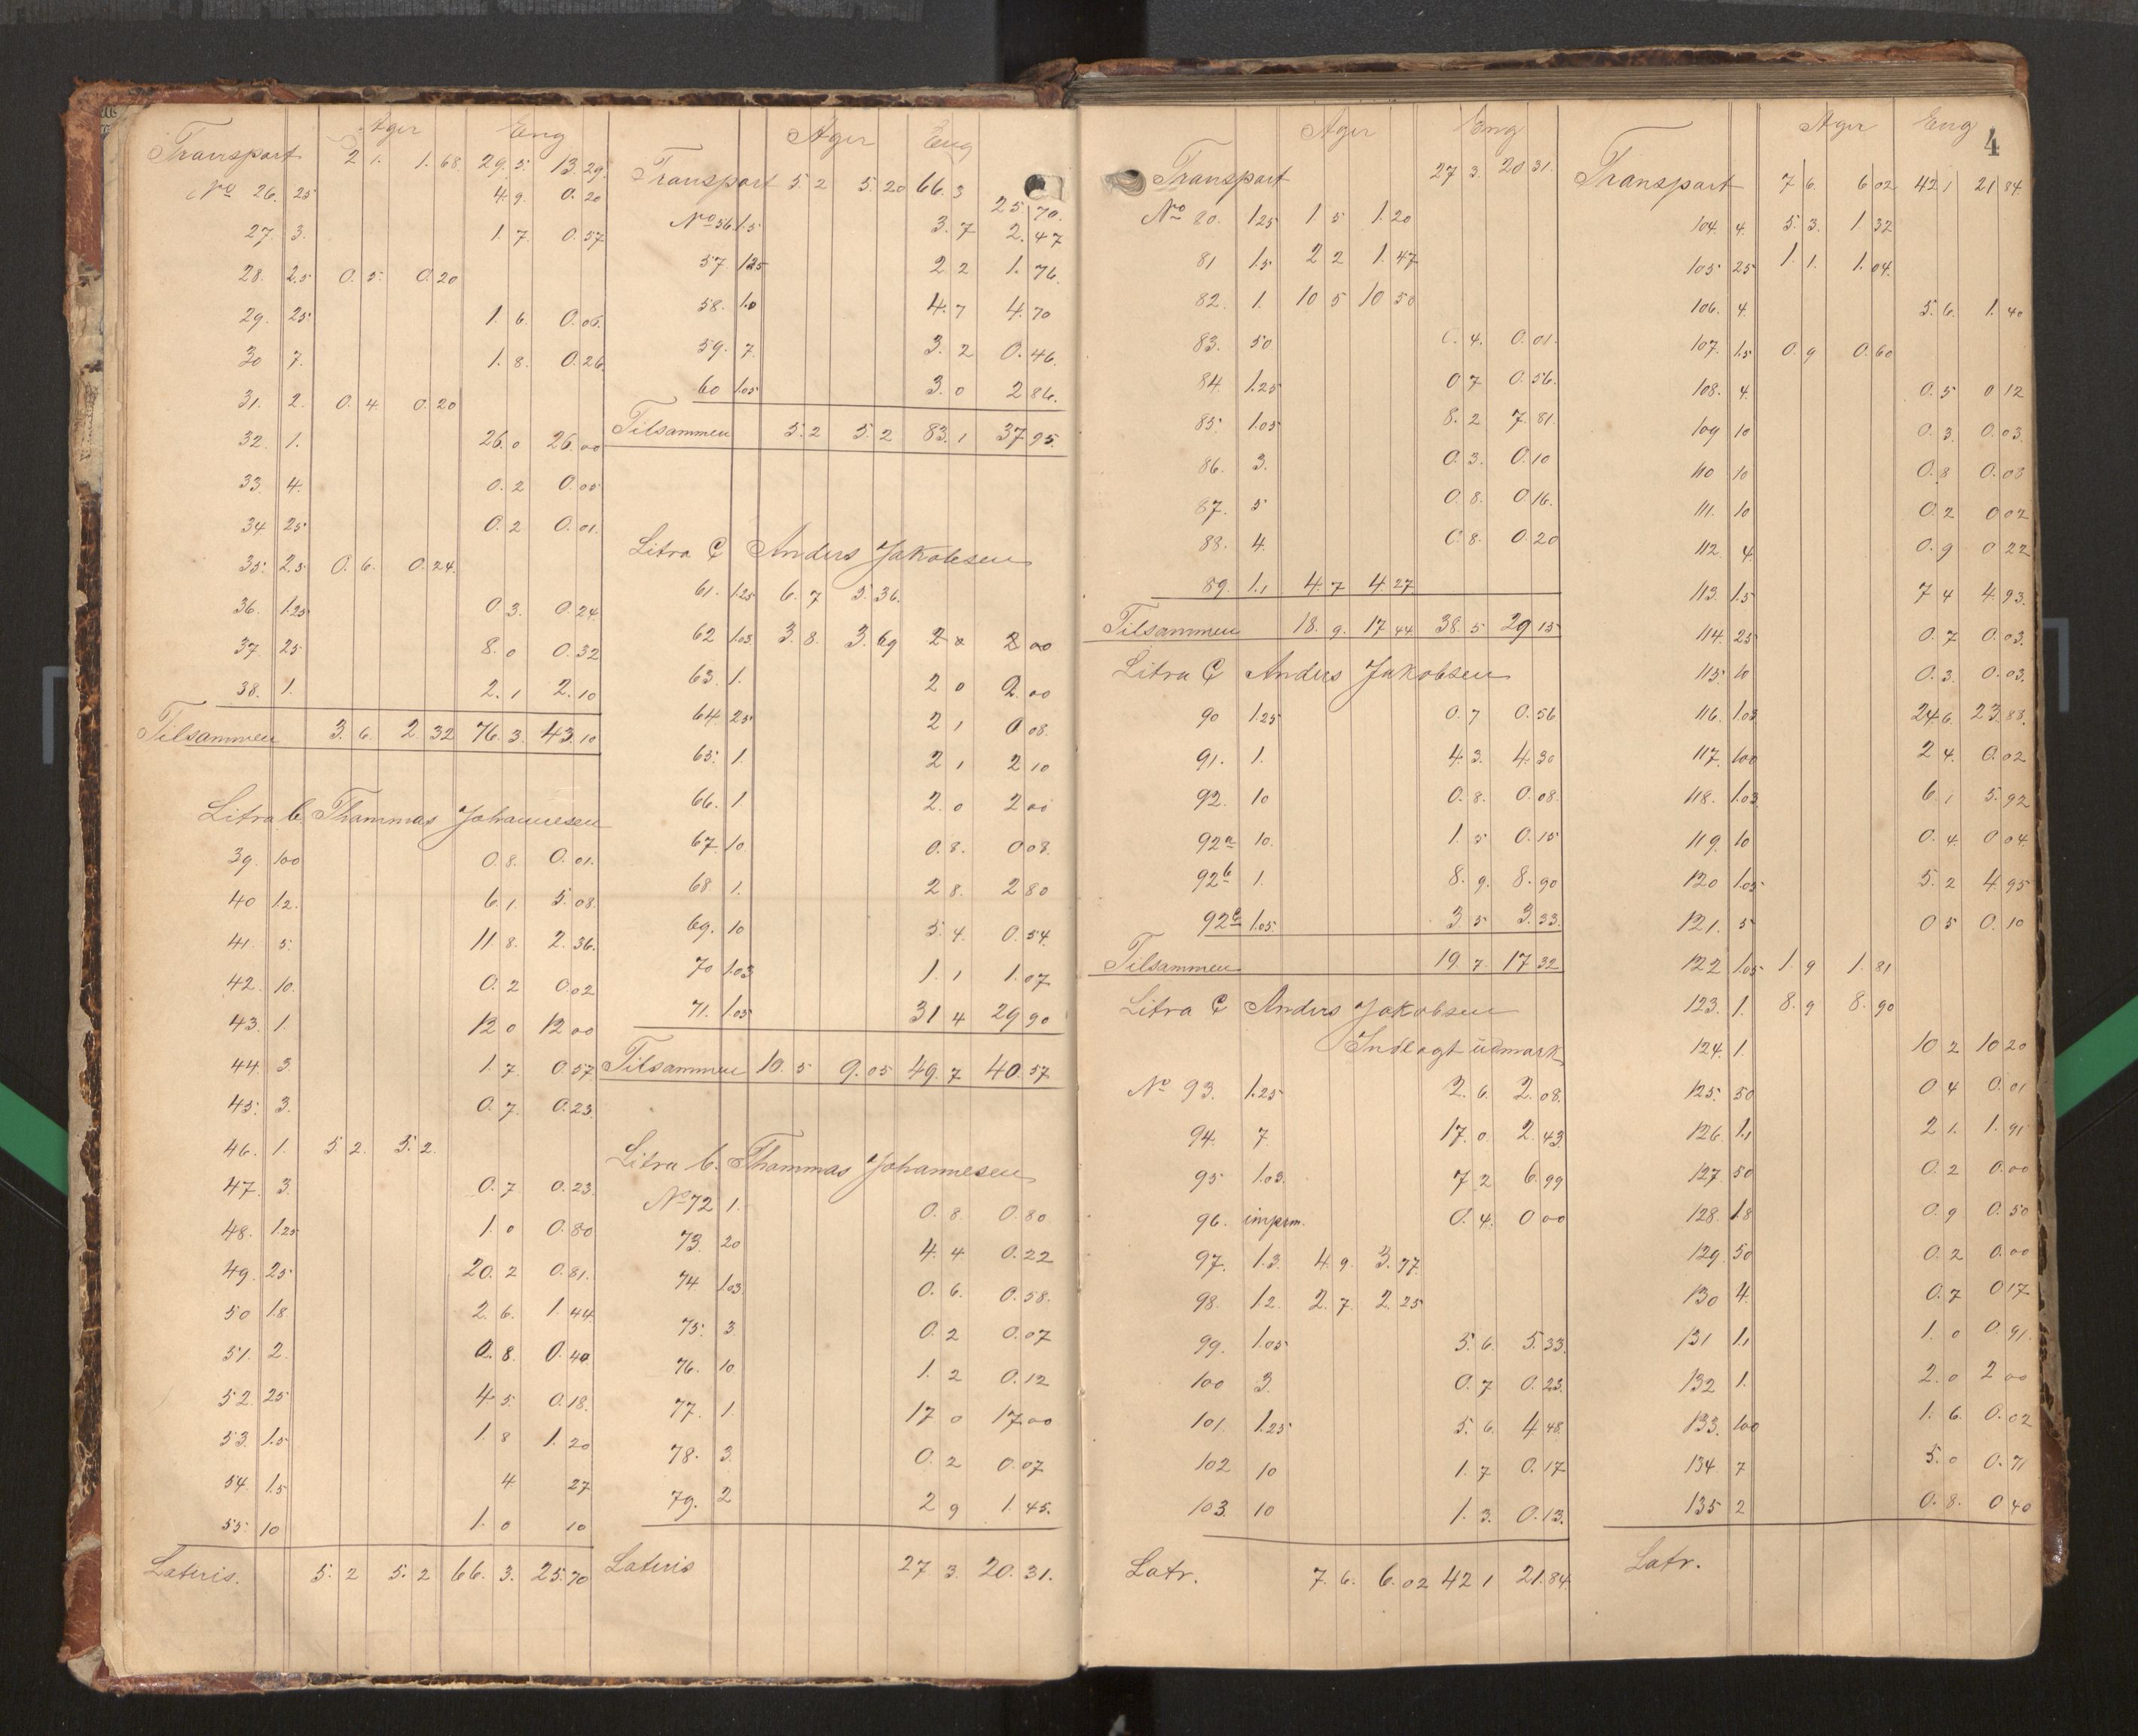 Ager Eng
Transport 2 1. 1.68 29.5. 13.29.
No 26. 25 4.9. 0.20
27. 3. 1.7. 0.57
28. 2.5 0.5. 0.20
29. 25 1.6. 0.06.
30 7. 1.8. 0.26
31. 2. 0.4. 0.20
32. 1. 26.0 26.00
33. 4. 0.2 0.05
34 25 0.2 0.01.
35. 2.5 0.6. 0.24.
36. 1.25 0.3. 0.24
37 25 8.0 0.32
38. 1. 2.1 2.10
Tilsammen 3.6. 2.32 76.3. 43.10
Litra b. Thammas Johannesen
39. 100 0.8. 0.01.
40 1.2. 6.1. 5.08.
41. 5. 11.8. 2.36.
42. 10. 0.2 0.02
43. 1. 12 0 12 00
44. 3. 1.7. 0.57.
45. 3. 0.7. 0.23.
46. 1. 5.2. 5.2.
47. 3. 0.7 0.23.
48. 1.25 1.0 0.80
49. 25 20.2 0.81.
50 1.8 2.6. 1.44
51. 2. 0.8. 0.40
52. 25 4.5. 0.18.
53. 1.5 1.8 1.20
54. 1.5 4 27
55. 10 1.0 10
Lateris. 5.2 5.2 66.3. 25.70
Ager Eng
Transport 5.2 5.20 66.3 25.70.
No 56 1.5 3.7 2.47
57 1.25 2 2 1.76.
58. 1.0 4.7 4.70
59. 7. 3.2 0.46.
60 1.05 3.0 2 86.
Tilsammen 5.2 5.2 83.1 37.95.
Litra C Anders Jakobsen
61. 1.25 6.7 5.36.
62 1.03 3.8. 3.69 2 0 2 00
63. 1. 2 0 2.00
64. 25 2 1 0 08.
65. 1. 2 1 2 10
66. 1. 2.0 2 00
67. 10. 0.8. 0 08.
68 1. 2 8. 2 80
69. 10 5.4. 0.54.
70 1.03 1.1 1.07
71. 1.05 31 4 29 90
Tilsammen 10.5 9.05 49.7 40.57
Litra b. Thammas Johannesen
No 72 1. 0.8. 0.80
73. 20 4.4 0.22
74 1.03 0.6. 0.58.
75. 3. 0.2 0.07
76. 10. 1.2 0.12
77. 1. 17 0 17.00
78. 3. 0.2 0.07
79. 2 2 9 1.45.
Lateris 27 3. 20.31.
4
Ager Eng
Transport 27 3. 20 31.
No 80. 1.25 1 5 1.20
81 1.5 2 2 1.47
82. 1. 10 5 10 50
83. 50 0.4. 0.01.
84. 1.25 0 7 0.56.
85. 1.05 8.2 7.81.
86. 3. 0.3. 0.10
87. 5 0.8. 0.16.
88. 4. 0.8. 0.20
89. 1.1 4.7 4.27
Tilsammen 18.9. 17 44 38.5 29 15
Litra C Anders Jakobsen
90 1.25 0.7 0.56
91. 1. 4 3. 4.30
92. 10 0.8. 0.08.
92a 10. 1.5 0.15
92b 1. 8.9. 8.90
92c 1.05 3 5 3.33.
Tilsammen 19.7. 17 32
Litra C Anders Jakobsen
Indlagt udmark
No 93. 1.25 2.6. 2.08.
94. 7 17.0. 2.43
95 1.03. 7 2 6.99
96. imprm. 0.4. 0 00
97. 1.3. 4.9. 3.77
98. 1.2. 2.7. 2.25
99. 1.05 5.6. 5.33.
100 3. 0.7 0.23.
101. 1.25 5.6. 4 48.
102 10 1.7 0.17
103. 10 1.3. 0.13.
Latr. 7.6. 6.02 42 1 21.84
Ager Eng
Transport 7 6. 6 02 42 1 21 84.
104. 4. 5.3. 1 32
105 25 1.1. 1.04.
106. 4. 5.6. 1.40
107. 1.5 0.9 0.60
108. 4. 0.5 0 12
109 10 0.3. 0.03.
110 10 0.8 0.08
111. 10 0.2 0 02
112. 4. 0.9 0 22
113. 1.5 7 4 4.93.
114. 25 0.7 0.03.
115. 10 0.3. 0.03.
116. 1.03 24 6. 23.83.
117. 100 2 4. 0.02
118. 1.03 6.1 5.92
119. 10 0.4. 0 04
120 1.05 5.2 4.95
121. 5 0 5 0.10
122 1.05 1.9 1.81
123. 1. 8.9 8.90
124. 1. 10 2 10 20
125. 50 0 4 0.01
126. 1.1 2 1. 1.91
127. 50 0.2 0.00
128. 1.8 0.9 0.50
129. 50 0.2 0.00
130 4. 0.7 0 17
131 1.1 1.0 0.91.
132 1. 2.0 2 00
133. 100 1.6. 0.02
134. 7 5.0 0.71
135 2 0.8. 0 40
Latr.